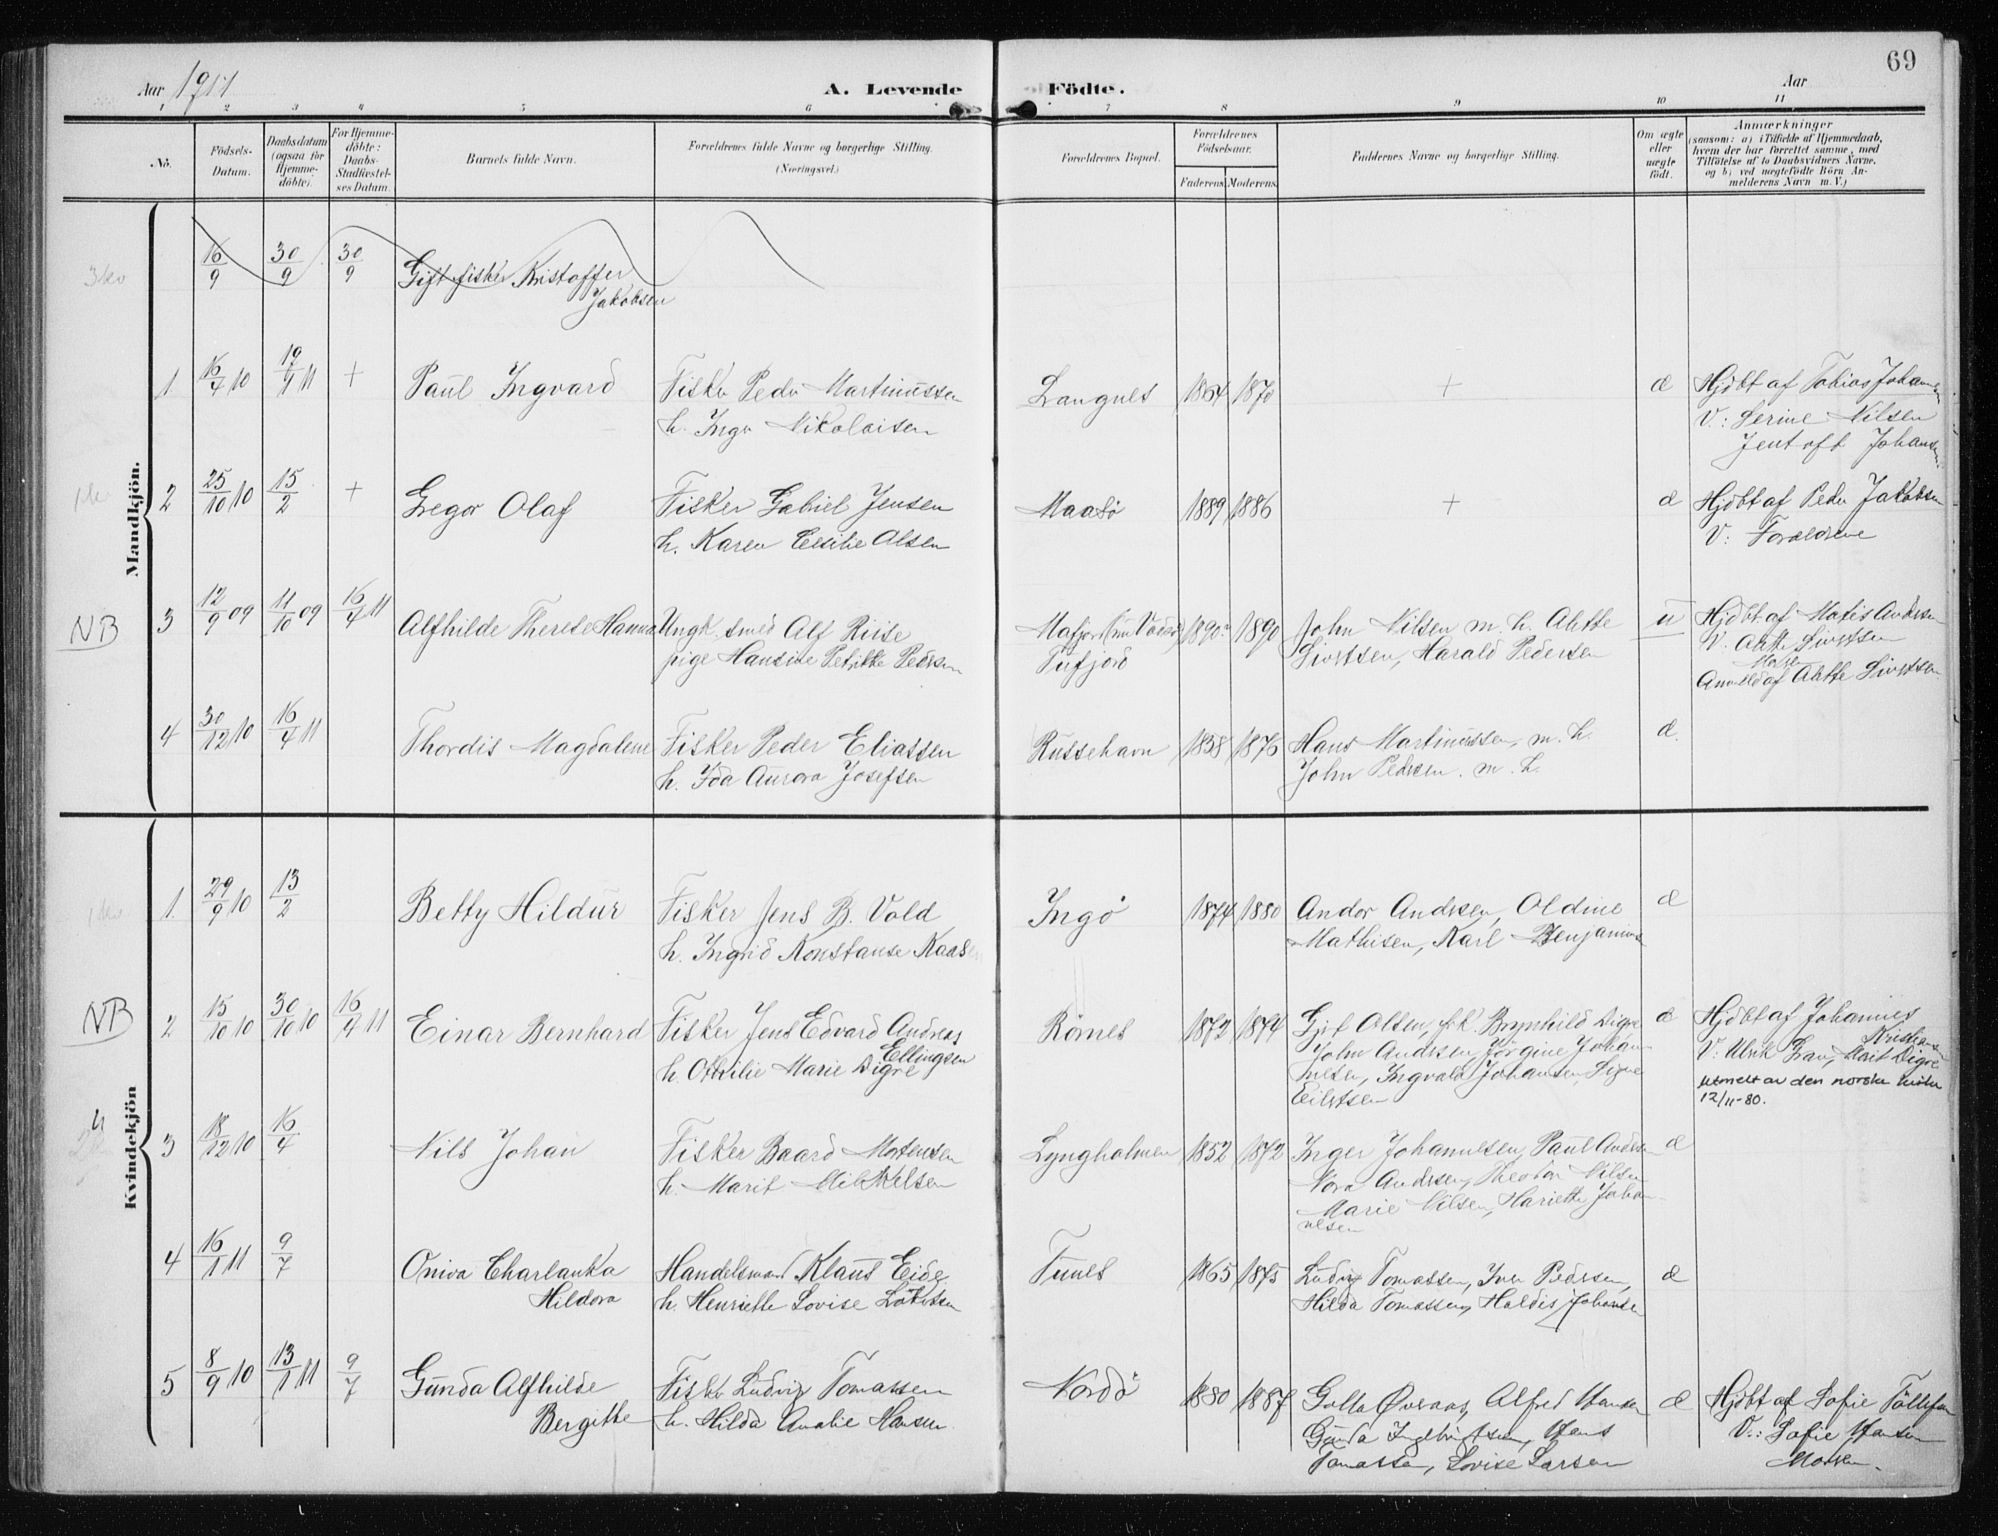 69
Aar 1911
A. Levende
Födte.
Aar
1 2 3 4 5 6 7 8 9 10 11
Nö.
Födsels-
Datum.
Daabsdatum
(ogsaa for
Hjemme-
döbte).
For Hjemme-
döbte:
Daabs-
Stadfæstel-
ses Datum.
Barnets fulde Navn.
Forældrenes fulde Navne og borgerlige Stilling.
(Næringsvei.)
Forældrenes Bopæl.
Forældrenes
Födselsaar.
Faderens. Moderens.
Faddernes Navne og borgerlige Stilling.
Om ægte
eller
uægte
födt.
Anmærkninger
(saasom: a) i Tilfælde af Hjemmedaab,
hvem der har forrettet samme, med
Tilföielse af to Daabsvidners Navne,
og b) ved uægtefödte Börn An-
melderens Navn m. V.)
Mandkjön.
16/9 30/9 30/9 Gift fisker Kristoffer
Jakobsen
1 16/7 10 19/1 11 + Paul Ingvard Fisker Peder Martinussen Langnes 1864 1870 + æ Hjdbt af Tobias Johansen
h. Inga Nikolaisen V.: Serine Nilsen
Jentoft Johansen
2 25/10 10 15/2 + Gregor Olaf Fisker Gabriel Jensen Maasö 1889 1886 + æ Hjdbt af Peder Jakobsen
h. Karen Cecilie Olsen V: Forældrene
NB 3 12/9 09 11/10 09 16/4 11 Alfhilde Therese Hanna Ungk. smed Alf Riise 1890 1890 John Nilsen m. h. Alette u Hjdbt af Matis Andersen
pige Hansine Petrikke Pedersen Tufjord Sivertsen, Harald Pedersen V. Alette Sivertsen
Anmeld af Alette Sivertsen
4 30/12 10 16/4 11 Thordis Magdalene Fisker Peder Eliassen Russehavn 1858 1876 Hans Martinussen m. h. æ.
h. Ida Aurora Josefsen John Pedersen. m. h.
Kvindekjön
1 29/9 10 13/2 Betty Hildur Fisker Jens B. Vold Ingö 1874 1880 Andor Andersen, Oldine æ
h. Ingrid Konstanse Kaasen Mathisen, Karl Benjamins
NB 2 15/10 10 30/10 10 16/4 11 Einar Bernhard Fisker Jens Edvard Andreas Rörnes 1872 1874 Olsen, frk. Brynhild Digre æ Hjdbt af Johannes
Ellingsen John Andersen, Jörgine Johan- Kristiansen
h. Othilie Marie Digre nesen, Ingvald Johansen, Signe V: Ulrik Grau, Marit Digre
Eilertsen utmeldt av den norske kirke
12/11-80.
3 18/12 10 16/4 Nils Johan Fisker Baard Mortensen Lyngholmen 1852 1872 Inger Johannesen, Paul Andersen æ
h. Marit Mikkelsen Nora Andersen, Theodor Nilsen
Marie Nilsen, Hariette Johan-
nesen
4 16/1 11 9/7 Oniva Charlanka Handelsmand Klaus Eide Tunes 1865 1875 Ludvig Tomassen, Iver Pedersen, æ
Hildora h. Henriette Lovise Hilda Tomassen, Haldis Johansen
5 8/9 10 13/1 11 9/7 Gunda Alfhilde Fisker Ludvig Tomassen Nordö 1880 1887 Alfred Hansen æ Hjdbt af Sofie
Bergitte h. Hilda Amalie Hansen. Gunda Ingebrigtsen, Hans V.: Sofie Hansen
Tomassen, Lovise Larsen